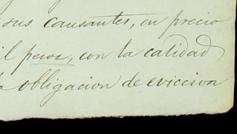 sus causantes, en precio
il pesos, con la calidad
obligacion de eviccion